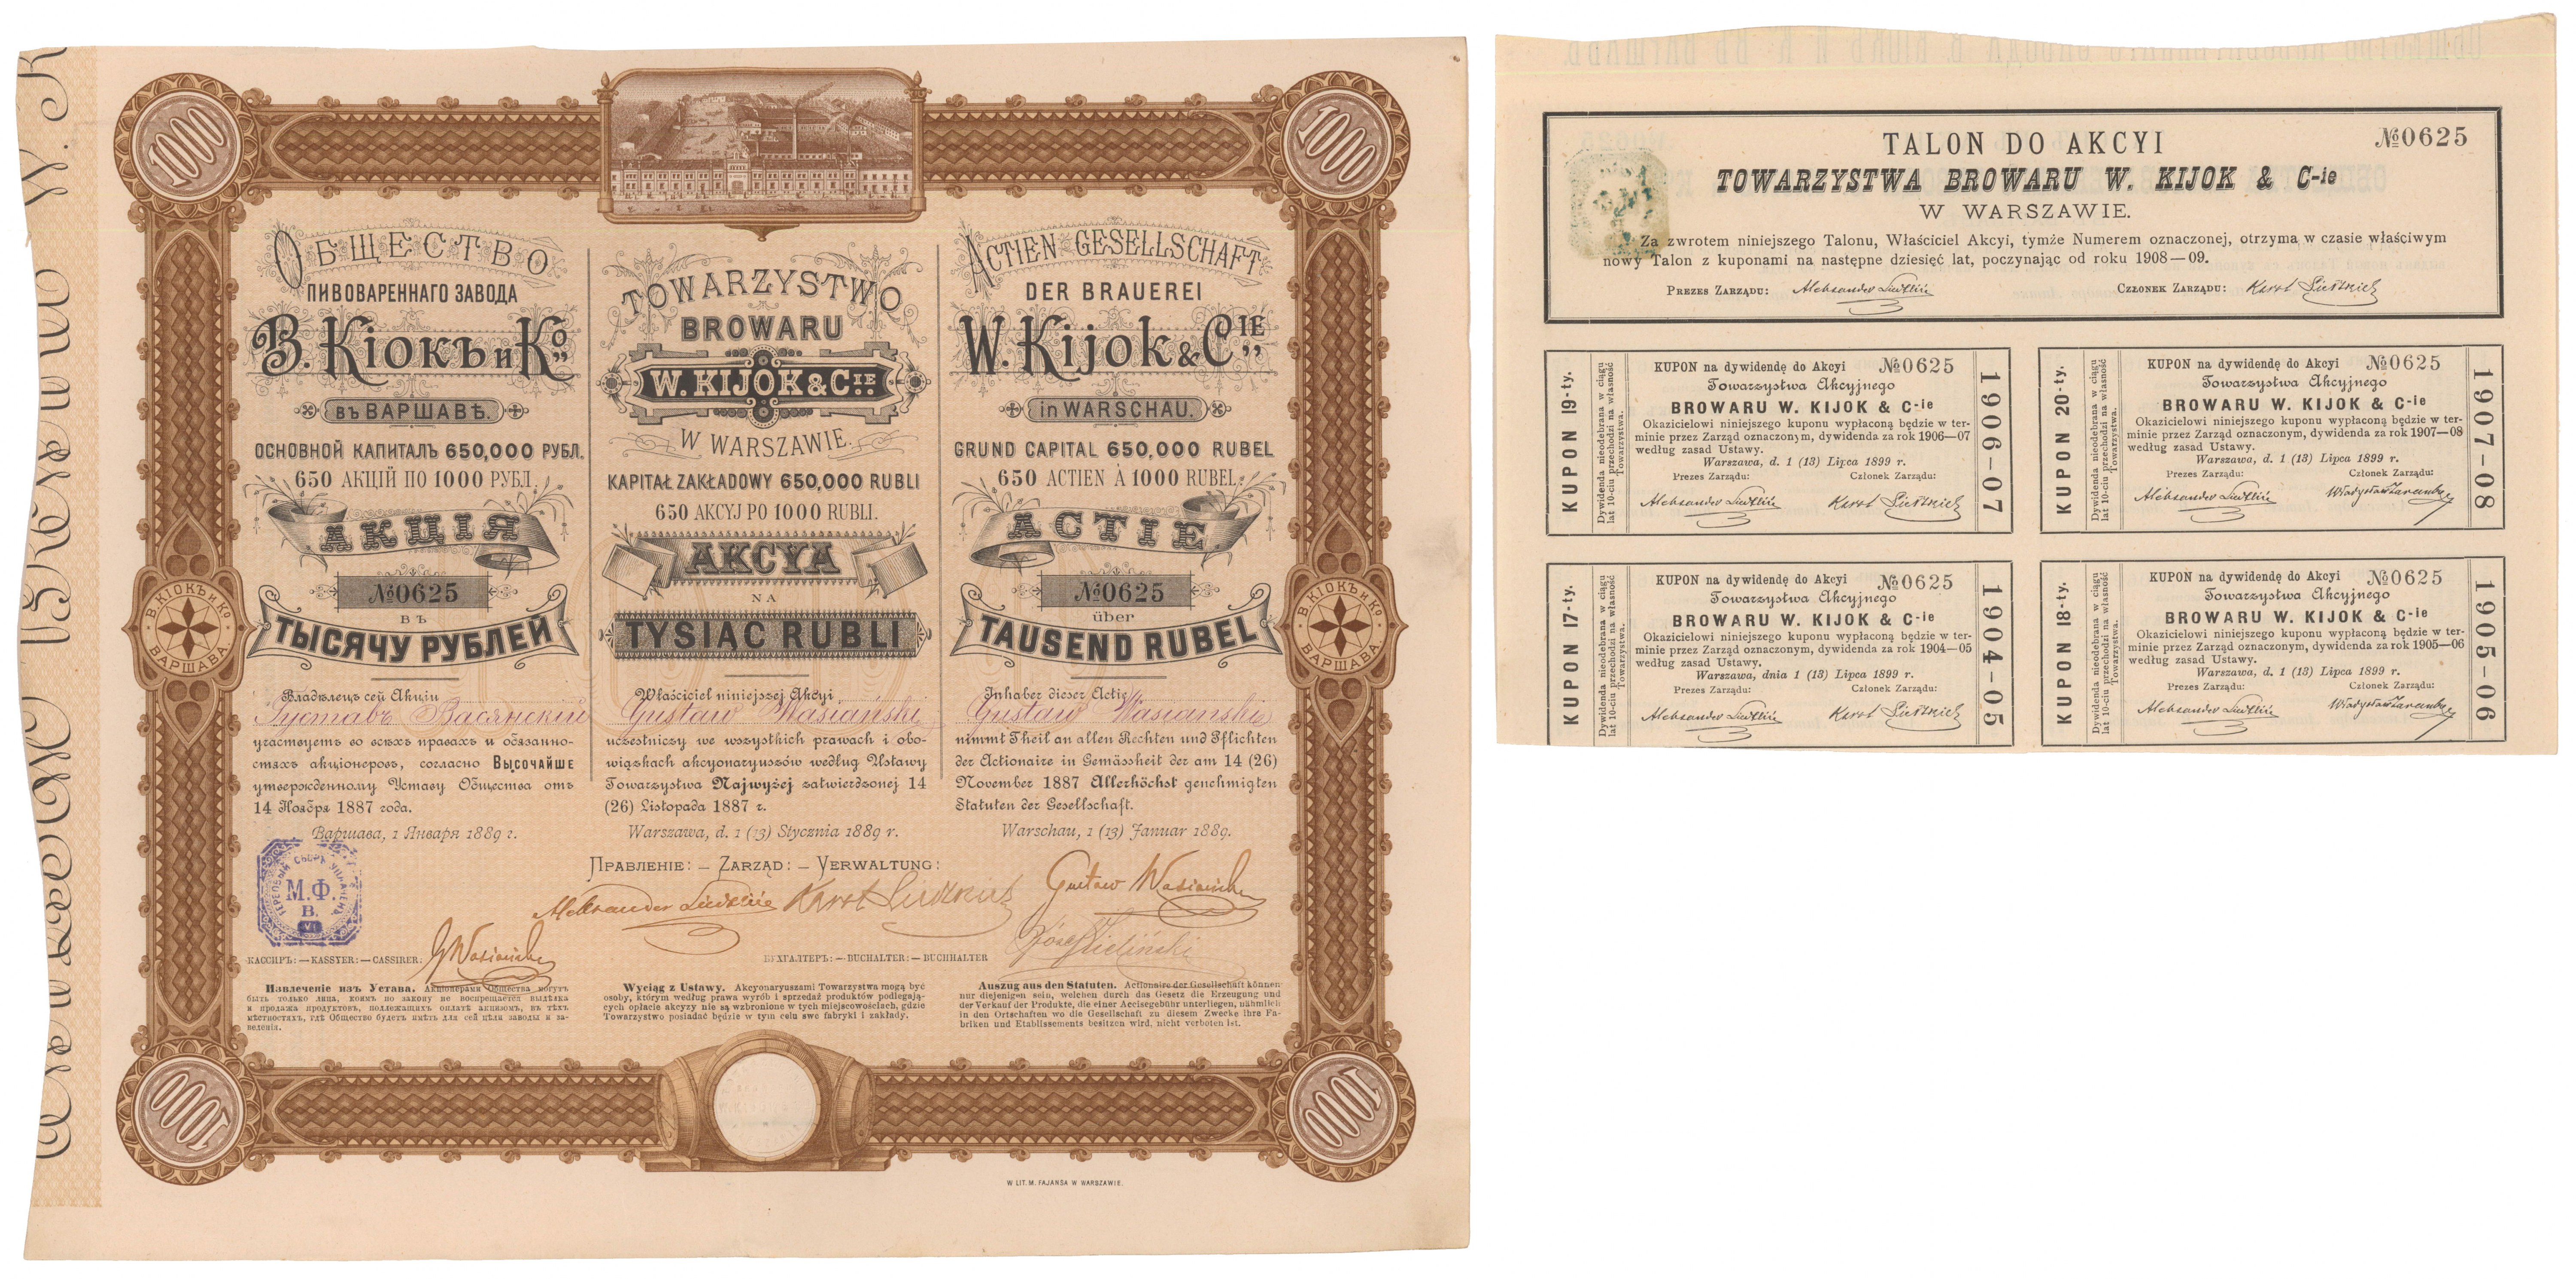 1000
1000
ОБЩЕСТВО
ПИВОВАРЕННАГО ЗАВОДА
В. Кіокъ и Ко
въ ВАРШАВѢ.
ОСНОВНОЙ КАПИТАЛЪ 650,000 РУБЛ.
650 АКЦІЙ ПО 1000 РУБЛ.
АКЦІЯ
№0625
ВЪ
ТЫСЯЧУ РУБЛЕЙ
Владѣлецъ сей Акціи
Густавъ Васянскій
участвуетъ во всѣхъ правахъ и обязанно-
стяхъ акціонеровъ, согласно ВЫСОЧАЙШЕ
утвержденному Уставу Общества отъ
14 Ноября 1887 года.
Варшава, 1 Января 1889 г.
TOWARZYSTWO
BROWARU
W. KIJOK & CIE
W WARSZAWIE.
KAPITAŁ ZAKŁADOWY 650,000 RUBLI
650 AKCYJ PO 1000 RUBLI.
AKCYA
NA
TYSIĄC RUBLI
Właściciel niniejszej Akcyi
Gustaw Wasiański
uczestniczy we wszystkich prawach i obo-
wiązkach akcyonaryuszów według Ustawy
Towarzystwa Najwyżej zatwierdzonej 14
(26) Listopada 1887 r.
Warszawa, d. 1 (13) Stycznia 1889 r.
ACTIEN GESELLSCHAFT
DER BRAUEREI
W. Kijok & CIE
in WARSCHAU.
GRUND CAPITAL 650,000 RUBEL
650 ACTIEN À 1000 RUBEL.
ACTIE
№0625
über
TAUSEND RUBEL
Inhaber dieser Actie
Gustaw Wasianski
nimmt Theil an allen Rechten und Pflichten
der Actionaire in Gemässheit der am 14 (26)
November 1887 Allerhöchst genehmigten
Statuten der Gesellschaft.
Warschau, 1 (13) Januar 1889.
В. КІОКЪ и Ко
ВАРШАВА
В. КІОКЪ и Ко
ВАРШАВА
ПРАВЛЕНІЕ: — ZARZĄD: — VERWALTUNG:
Gustaw Wasiański
М.Ф.
В.
VI
КАССИРЪ: — KASSYER: — CASSIRER:
GWasiański
БУХГАЛТЕРЪ: — BUCHALTER: — BUCHHALTER
Józef Zieliński
Извлеченіе изъ Устава. Акціонерами Общества могутъ
быть только лица, коимъ по закону не воспрещается выдѣлка
и продажа продуктовъ, подлежащихъ оплатѣ акцизомъ, въ тѣхъ
мѣстностяхъ, гдѣ Общество будетъ имѣть для сей цѣли заводы и за-
веденія.
Wyciąg z Ustawy. Akcyonaryuszami Towarzystwa mogą być
osoby, którym według prawa wyrób i sprzedaż produktów podlegają-
cych opłacie akcyzy nie są wzbronione w tych miejscowościach, gdzie
Towarzystwo posiadać będzie w tym celu swe fabryki i zakłady.
Auszug aus den Statuten. Actionaire der Gesellschaft können
nur diejenigen sein, welchen durch das Gesetz die Erzeugung und
der Verkauf der Produkte, die einer Accisegebühr unterliegen, nähmlich
in den Ortschaften wo die Gesellschaft zu diesem Zwecke ihre Fa-
briken und Etablissements besitzen wird, nicht verboten ist.
1000
1000
W LIT. M. FAJANSA W WARSZAWIE.
TALON DO AKCYI
№0625
TOWARZYSTWA BROWARU W. KIJOK & C-ie
W WARSZAWIE.
Za zwrotem niniejszego Talonu, Właściciel Akcyi, tymże Numerem oznaczonej, otrzyma w czasie właściwym
nowy Talon z kuponami na następne dziesięć lat, poczynając od roku 1908—09.
PREZES ZARZĄDU:
CZŁONEK ZARZĄDU:
KUPON 19-ty.
Dywidenda nieodebrana w ciągu
lat 10-ciu przechodzi na własność
Towarzystwa.
KUPON na dywidendę do Akcyi №0625
Towarzystwa Akcyjnego
BROWARU W. KIJOK & C-ie
Okazicielowi niniejszego kuponu wypłaconą będzie w ter-
minie przez Zarząd oznaczonym, dywidenda za rok 1906—07
według zasad Ustawy.
Warszawa, d. 1 (13) Lipca 1899 r.
Prezes Zarządu: Członek Zarządu:
1906-07
KUPON 20-ty.
Dywidenda nieodebrana w ciągu
lat 10-ciu przechodzi na własność
Towarzystwa.
KUPON na dywidendę do Akcyi №0625
Towarzystwa Akcyjnego
BROWARU W. KIJOK & C-ie
Okazicielowi niniejszego kuponu wypłaconą będzie w ter-
minie przez Zarząd oznaczonym, dywidenda za rok 1907—08
według zasad Ustawy.
Warszawa, d. 1 (13) Lipca 1899 r.
Prezes Zarządu: Członek Zarządu:
1907-08
KUPON 17-ty.
Dywidenda nieodebrana w ciągu
lat 10-ciu przechodzi na własność
Towarzystwa.
KUPON na dywidendę do Akcyi №0625
Towarzystwa Akcyjnego
BROWARU W. KIJOK & C-ie
Okazicielowi niniejszego kuponu wypłaconą będzie w ter-
minie przez Zarząd oznaczonym, dywidenda za rok 1904—05
według zasad Ustawy.
Warszawa, dnia 1 (13) Lipca 1899 r.
Prezes Zarządu: Członek Zarządu:
1904-05
KUPON 18-ty.
Dywidenda nieodebrana w ciągu
lat 10-ciu przechodzi na własność
Towarzystwa.
KUPON na dywidendę do Akcyi №0625
Towarzystwa Akcyjnego
BROWARU W. KIJOK & C-ie
Okazicielowi niniejszego kuponu wypłaconą będzie w ter-
minie przez Zarząd oznaczonym, dywidenda za rok 1905—06
według zasad Ustawy.
Warszawa, d. 1 (13) Lipca 1899 r.
Prezes Zarządu: Członek Zarządu:
1905-06